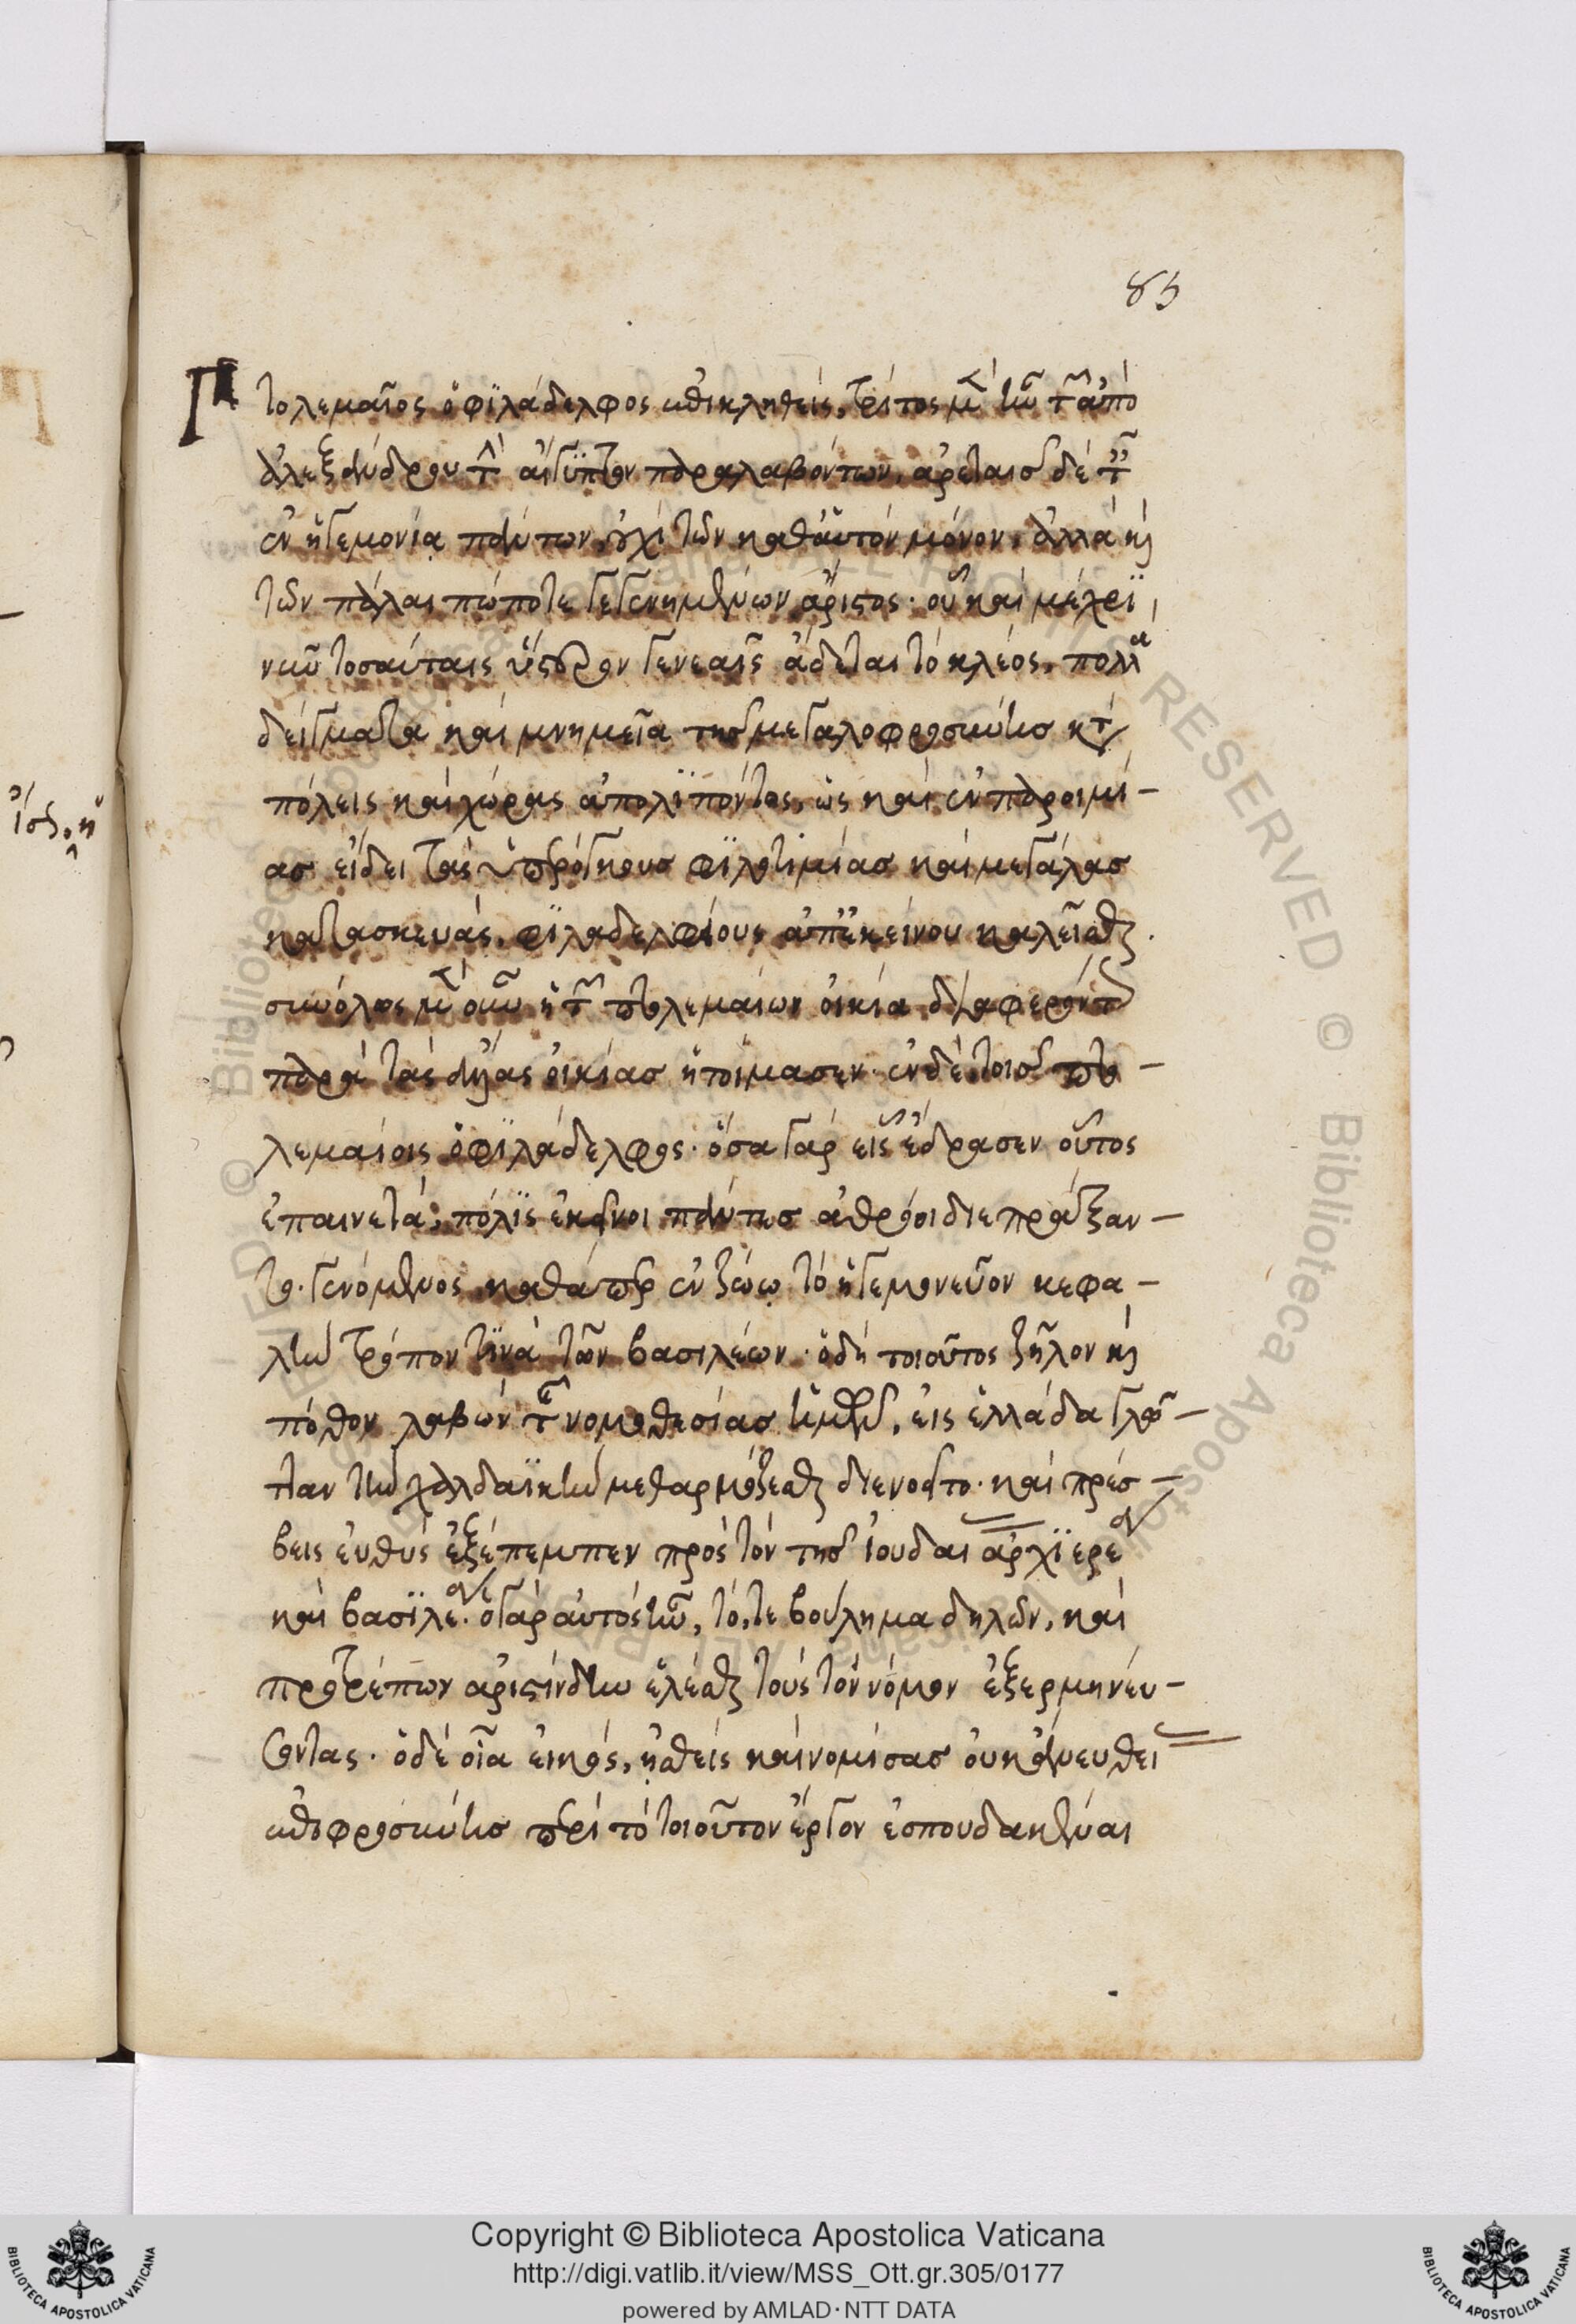 85
Πτολεμαῖος ὁ φϊλάδελφος ἐπικληθεὶς, τρίτος μὲν ἦν τῶν ἀπὸ
ἀλεξάνδρου τὴν αἴγϋπτον παραλαβόντων, ἀρεταῖσ δὲ ταῖς
ἐν ἡγεμονίᾳ πάντων, οὐχὶ τῶν καθ' αὑτὸν μόνον, ἀλλὰ καὶ
τῶν πάλαι πώποτε γεγενημένων ἄριστος· οὗ καὶ μέχρϊ
νῦν τοσαύταις ὕστερον γενεαῖς ἄδεται τὸ κλέος, πολλὰ
δείγματα καὶ μνημεῖα τῆσ μεγαλοφροσύνησ κατὰ
πόλεις καὶ χώρας ἀπολϊπόντος, ὡς καὶ ἐν παροιμί-
ασ εἴδει τὰς ὑπερόγκουσ φϊλοτιμίασ καὶ μεγάλασ
κατασκευὰς, φϊλαδελφίους ἀπ' ἐκείνου καλεῖσθαι.
συνόλως μὲν οὖν ἡ τῶν πτολεμαίων οἰκία διαφερόντως
παρὰ τὰς ἄλλας οἰκίασ ἤκμασεν· ἐν δὲ τοῖσ πτο-
λεμαίοις ὁ φϊλάδελφος· ὅσα γὰρ εἷς ἔδρασεν οὗτος
ἐπαινετὰ, μόλϊς ἐκεῖνοι πάντεσ ἀθρόοι διεπράξαν-
το. γενόμενος καθάπερ ἐν ζώῳ τὸ ἡγεμονεῦον κεφα-
λὴν τρόπον τϊνὰ τῶν βασιλέων· ὁ δὴ τοιοῦτος ζῆλον καὶ
πόθον λαβὼν τῆς νομοθεσίασ ἡμῶν, εἰς ἑλλάδα γλῶ-
τταν τὴν χαλδαϊκὴν μεθαρμόζεσθαι διενοεῖτο. καὶ πρέσ-
βεις εὐθὺς ἐξέπεμπεν πρὸς τὸν τῆσ ἰουδαι ἀρχϊερέα
καὶ βασϊλέα. ὁ γὰρ αὐτὸς ἦν, τό, τε βούλημα δηλῶν, καὶ
προτρέπων ἀριστίνδην ἑλέσθαι τοὺς τὸν νόμον ἐξερμηνεύ-
σοντας. ὁ δὲ οἷα εἰκὸς, ἡσθεὶς καὶ νομίσασ οὐκ ἄνευ θεί
ἐπιφροσύνησ περὶ τὸ τοιοῦτον ἔργον ἐσπουδακέναι
Copyright © Biblioteca Apostolica Vaticana
http://digi.vatlib.it/view/MSS_Ott.gr.305/0177
powered by AMLAD·NTT DATA